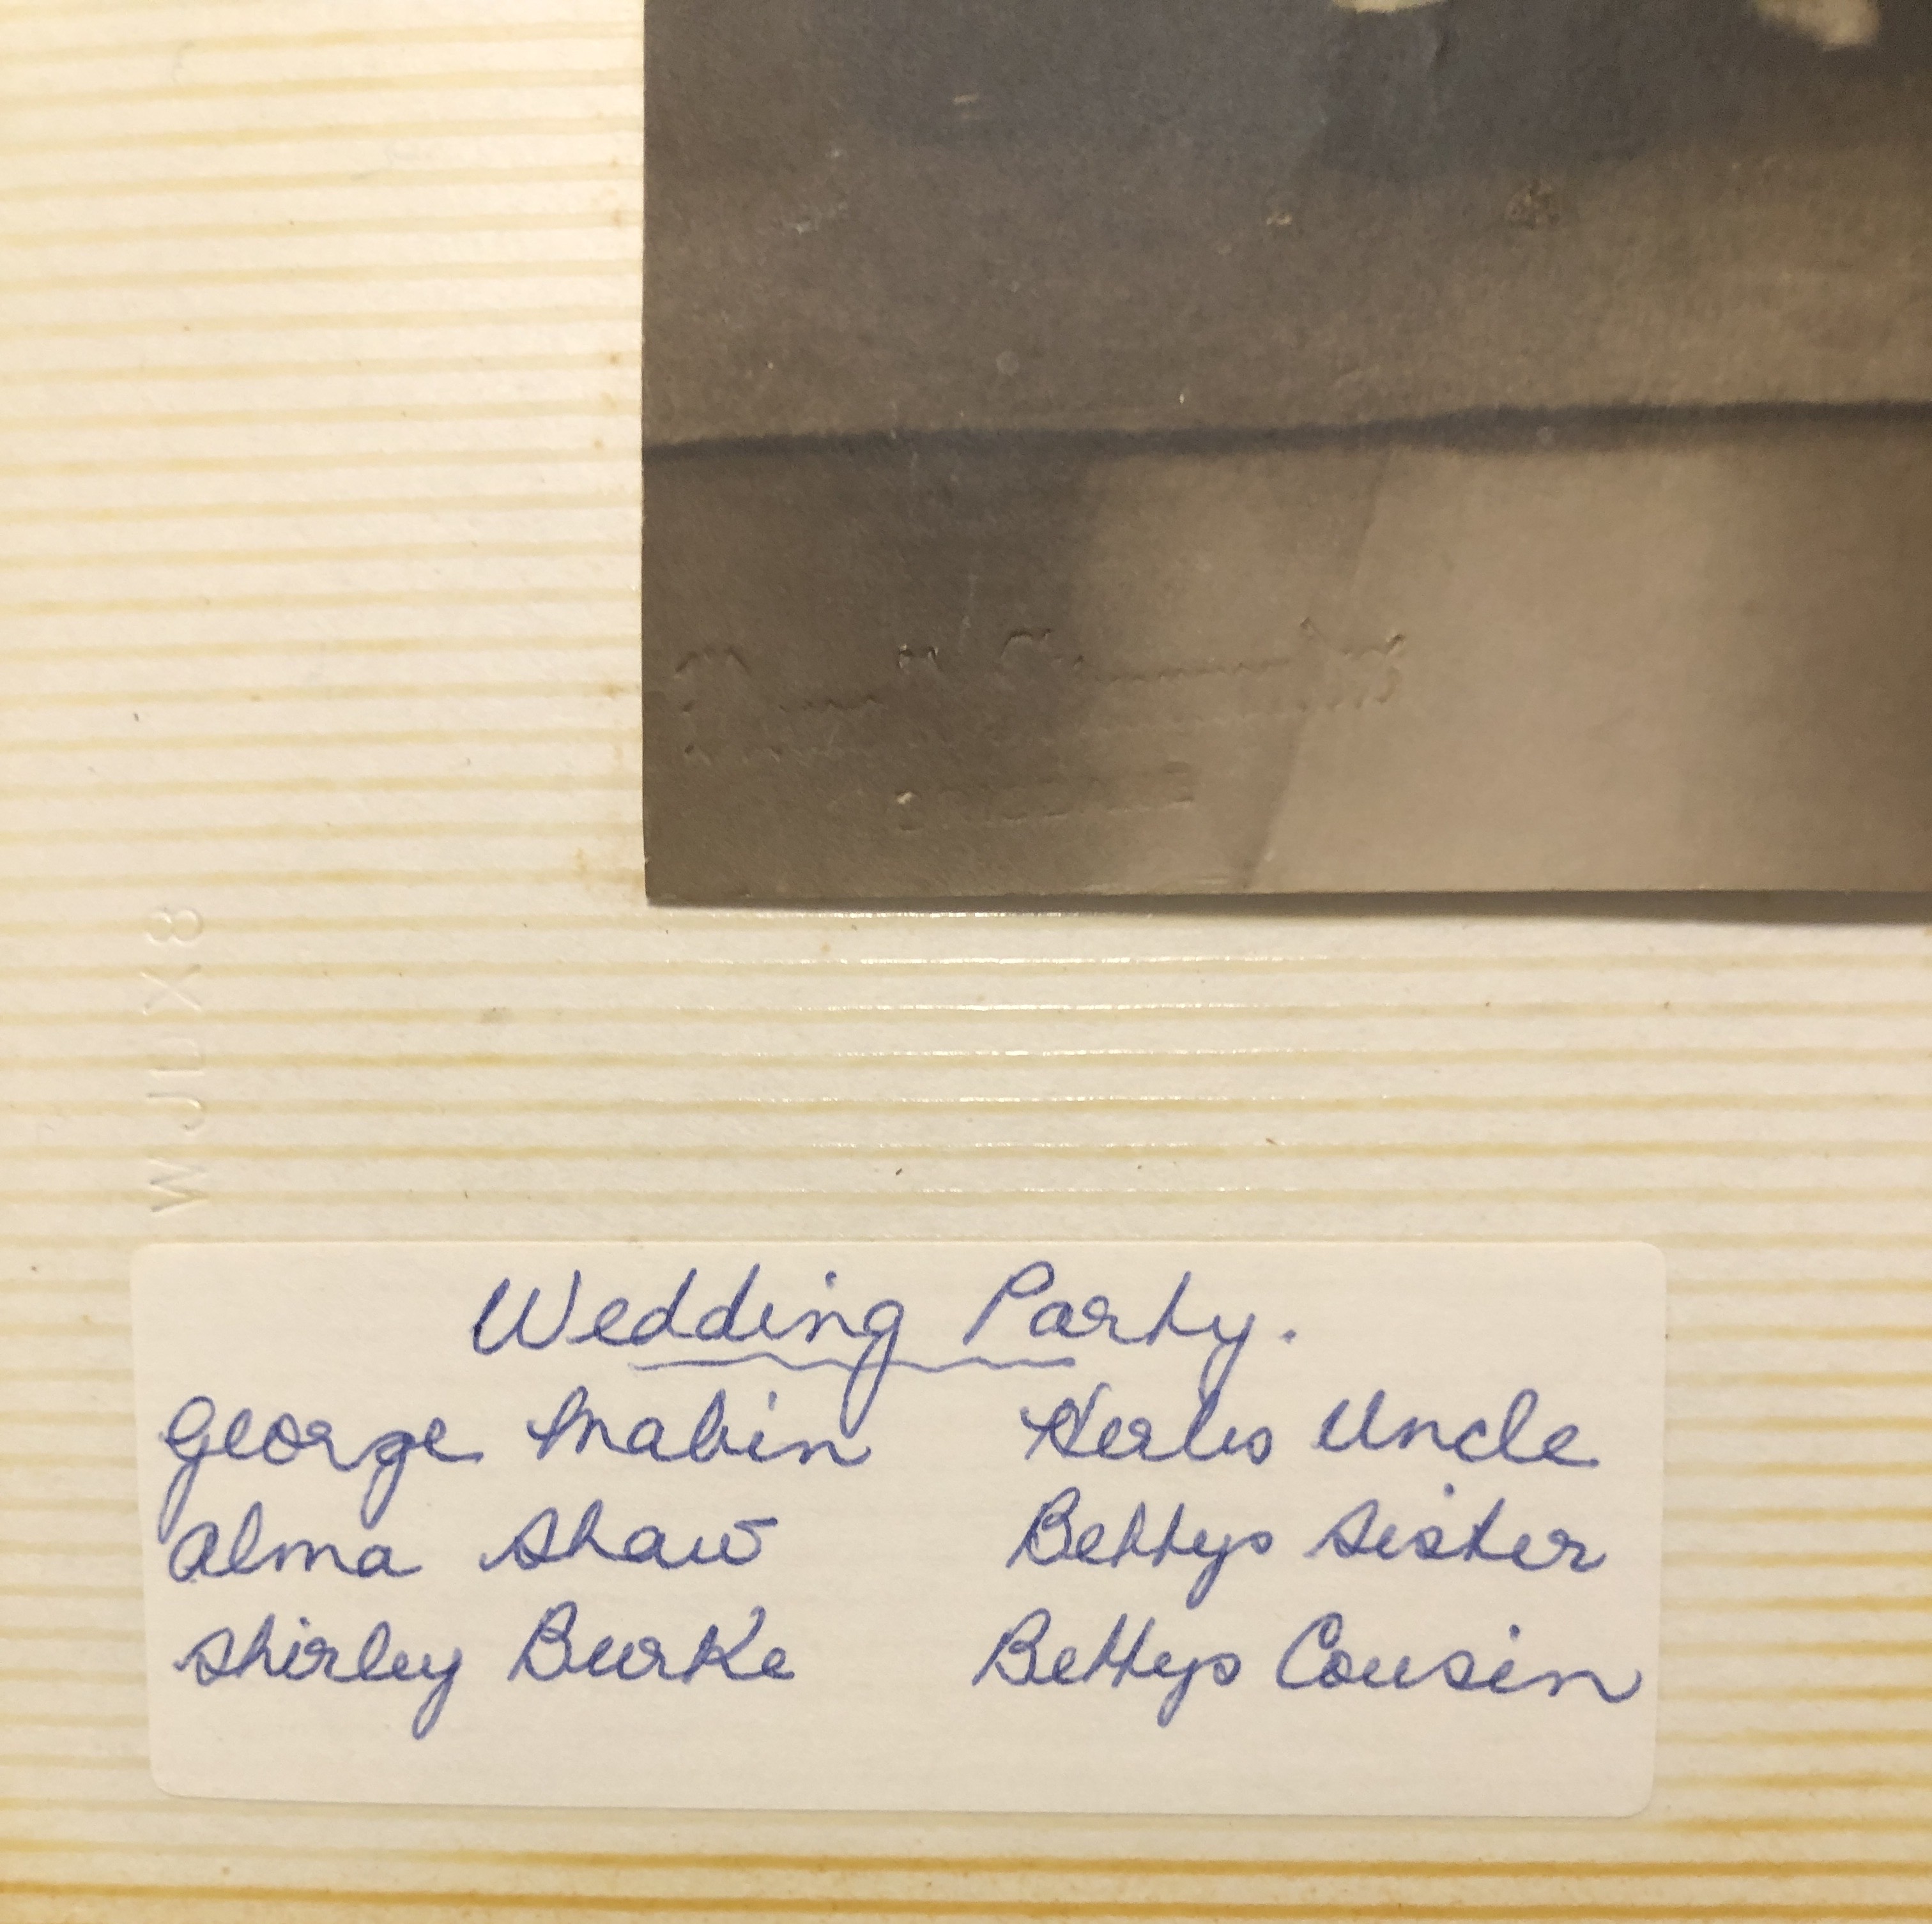 WJDX8
Wedding Party.
George Mabin Herbs Uncle
Alma Shaw Bettys Sister
Shirley Burke Bettys Cousin